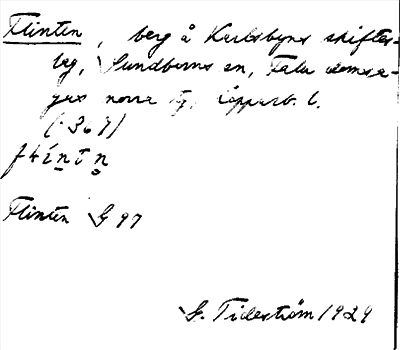 Flinten, berg å Karlsbyns skifteslag, Sundborns sn, Falu domsagas norra tg, Kopparb. l.
(:367)
Flinten G 97
G. Tideström 1929